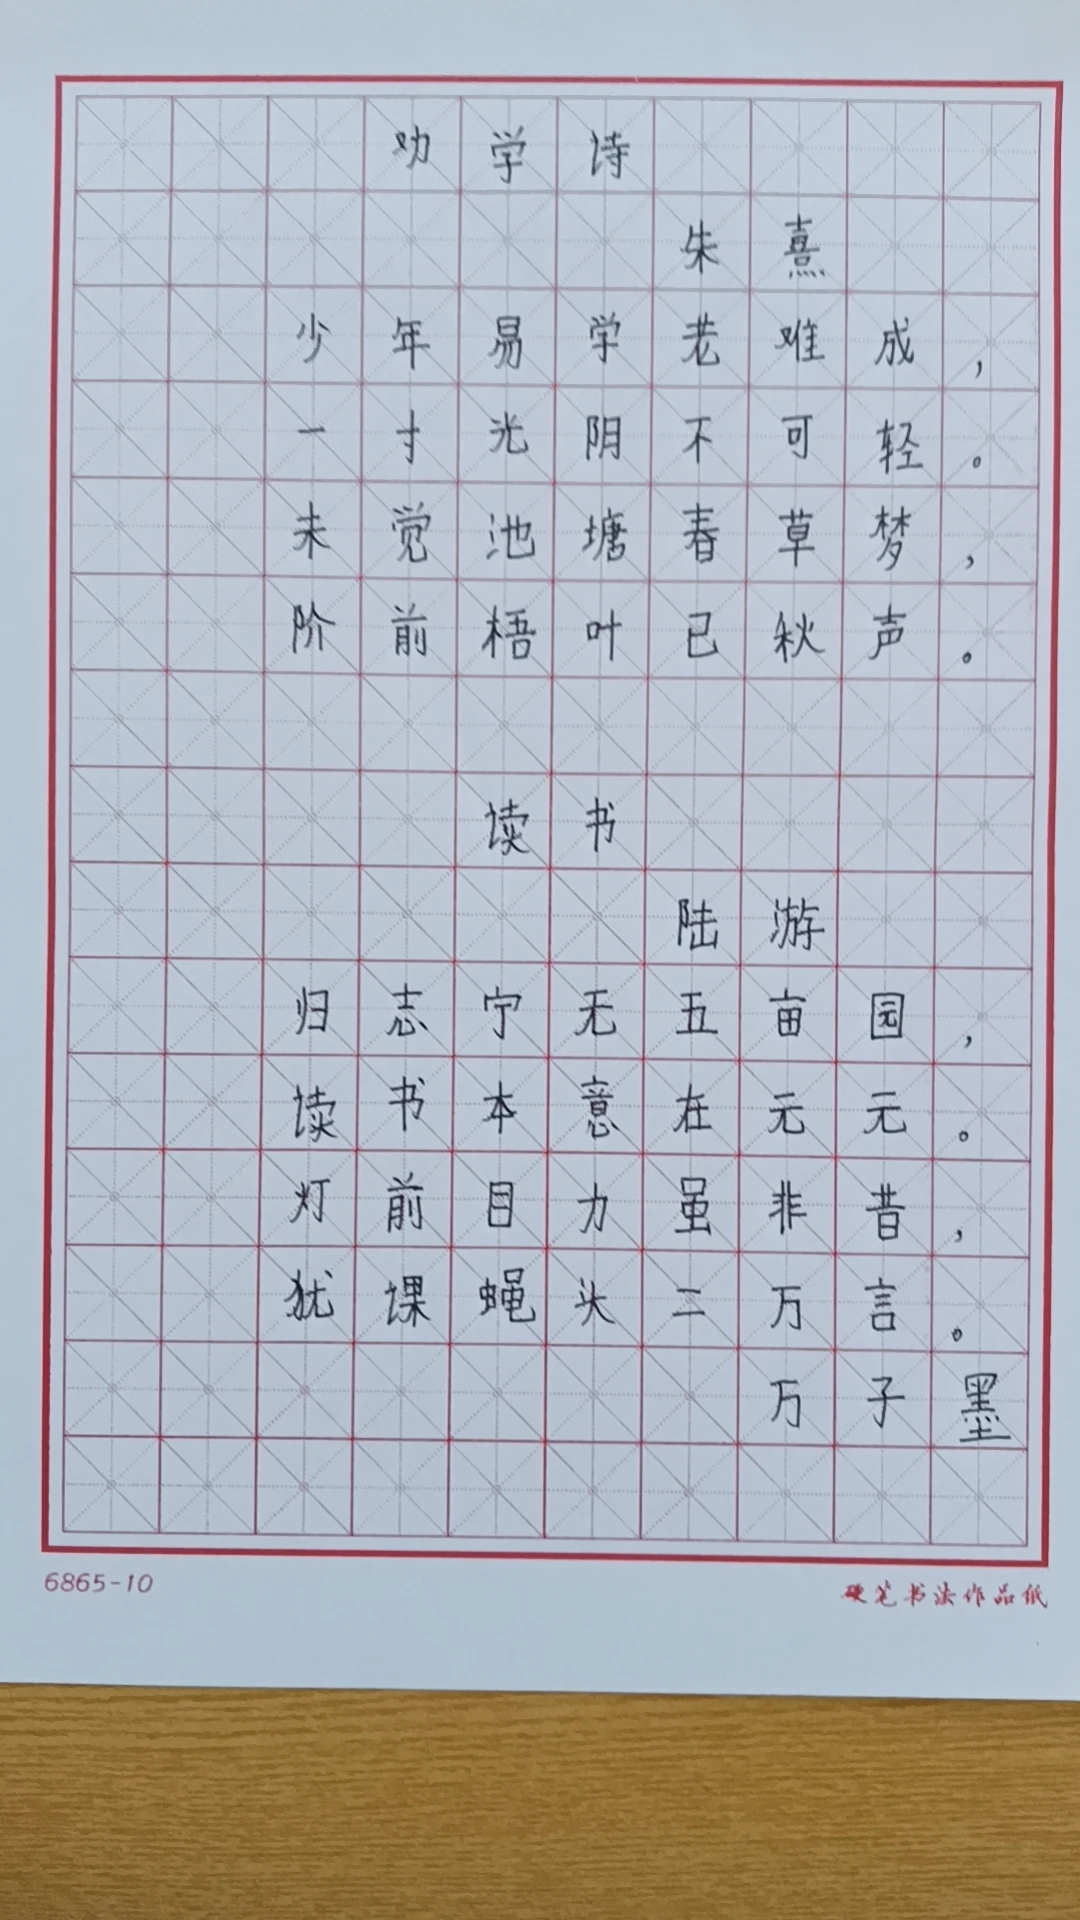 劝学诗
朱熹
少年易学老难成，
一寸光阴不可轻。
未觉池塘春草梦，
阶前梧叶已秋声。
读书
陆游
归志宁无五亩园，
读书本意在元元。
灯前目力虽非昔，
犹课蝇头二万言。
万子墨
6865-10
硬笔书法作品纸